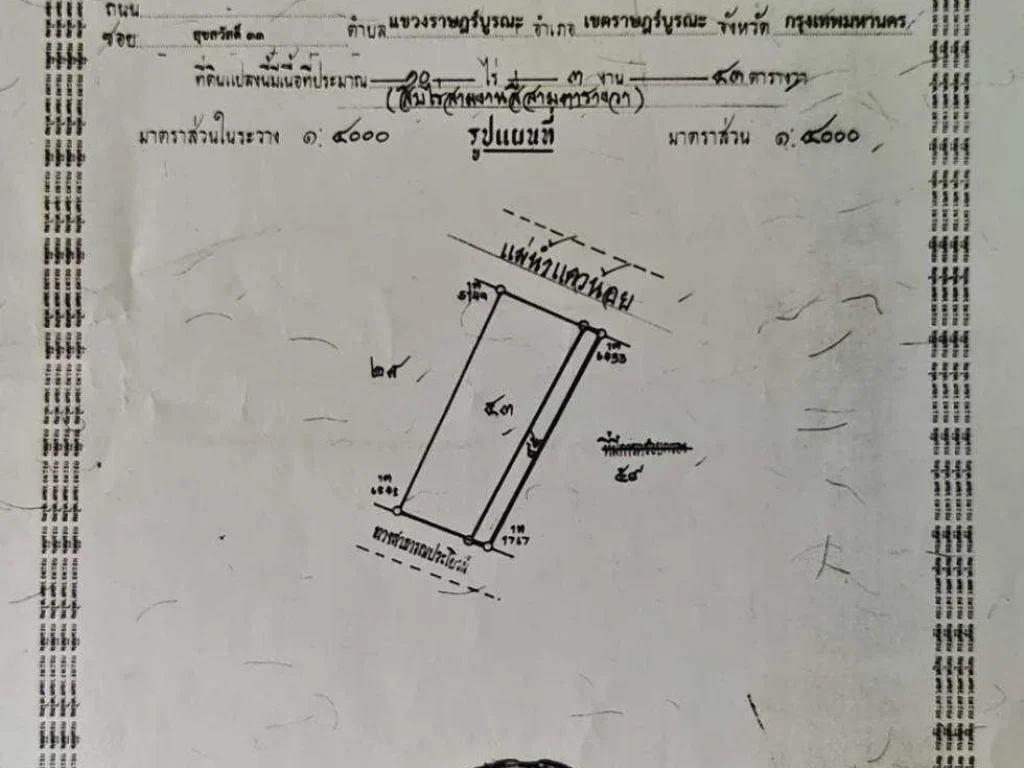 ถนน
ซอย สุขสวัสดิ์ ๓๓ ตำบล แขวงราษฎร์บูรณะ อำเภอ เขตราษฎร์บูรณะ จังหวัด กรุงเทพมหานคร
ที่ดินแปลงนี้มีเนื้อที่ประมาณ ๑๐ ไร่ ๓ งาน ๔๓ ตารางวา
(สิบไร่สามงานสี่สามตารางวา)
มาตราส่วนในระวาง ๑: ๔๐๐๐ รูปแผนที่ มาตราส่วน ๑: ๔๐๐๐
แม่น้ำแควน้อย
๒๘
๕๓
๕๙
ทางสาธารณประโยชน์